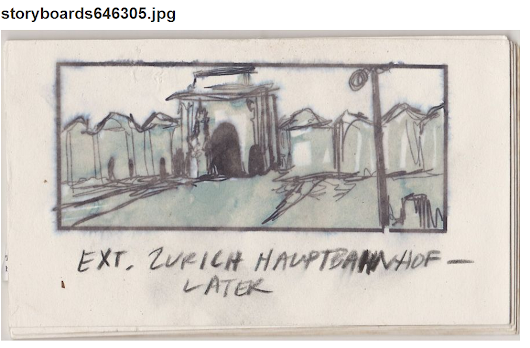 storyboards646305.jpg
EXT. ZURICH HAUPTBAHNHOF —
LATER